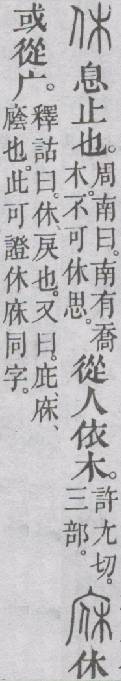 休息止也。周南曰。南有喬木。不可休思。從人依木。許尤切。三部。庥休
或從广。釋詁曰。休、戾也。又曰。庇、庥、廕也。此可證休庥同字。